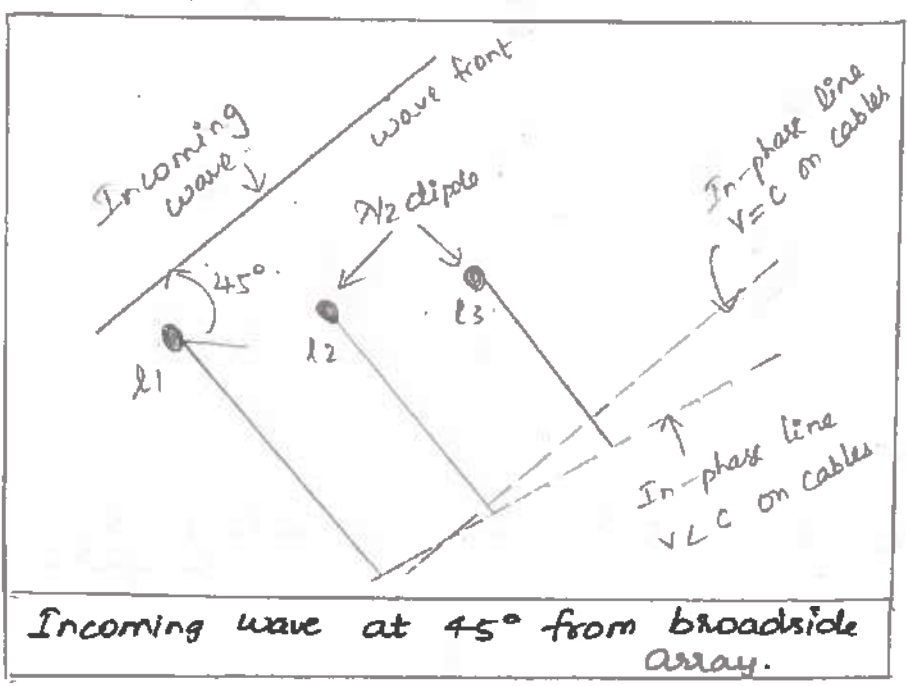 Incoming
wave
wave front
45°
λ/2 dipole
l1
l2
l3
In-phase line
V=C on cables
In-phase line
V<C on cables
Incoming wave at 45° from broadside
array.